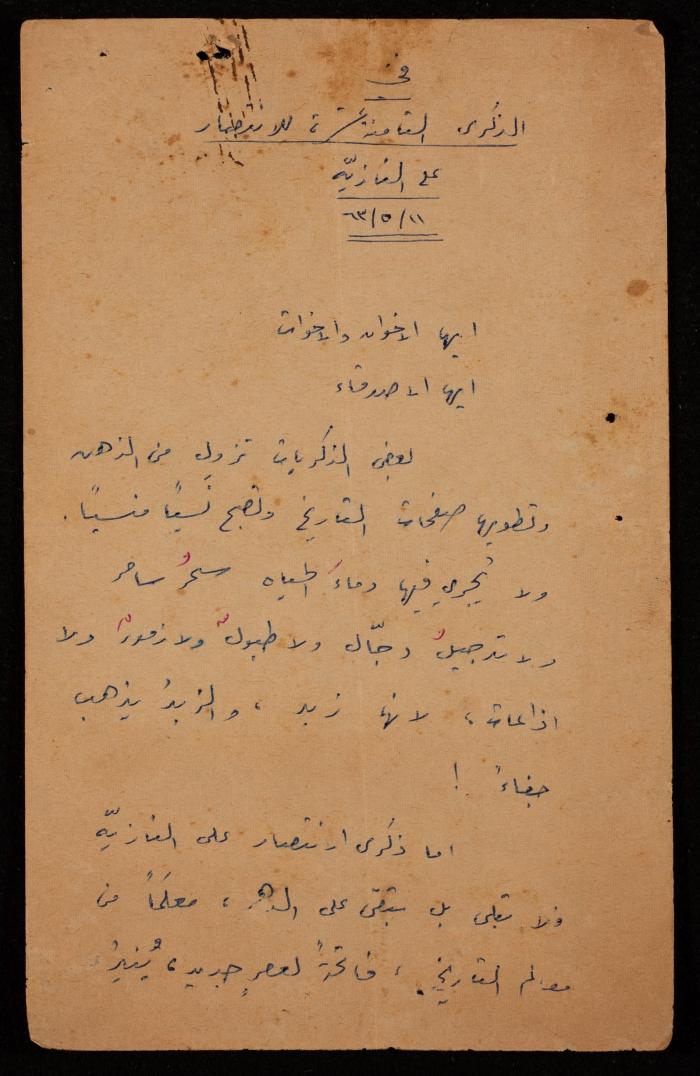 في
الذكرى الثامنة عشرة للانتصار
على النازيّه
١١/٥/٦٣
ايها الاخوان والاخوات
ايها الاصدقاء
بعض الذكريات تزول من الذهن
وتطويها صفحات التاريخ وتصبح نَسيًا منسيًا.
ولا يُجري فيها دماءَ الحياه سحرُ ساحر
ولا تدجيلُ دجّال ولا طبولٌ ولا زمورٌ ولا
اذاعات، لانها زبد، والزبدُ يذهب
جفاءً !
اما ذكرى الانتصار على النازيّه
فلا تبلى بل تبقى على الدهر، معلَمًا من
معالم التاريخ، فاتحةً لعصرٍ جديد، يُنيرُ